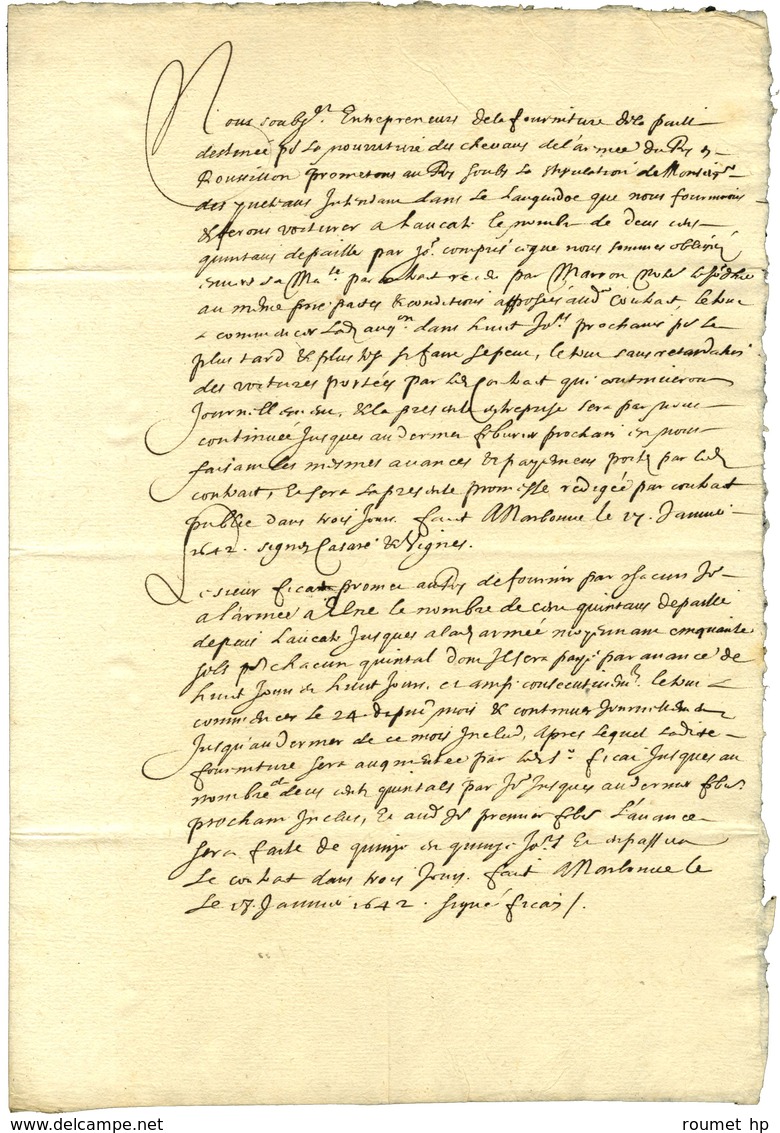 Nous soubz.nez Entrepreneurs de la fourniture de la paille
destinée pr la nourriture des chevaus de l'armée du Roy en
Roussillon prometons au Roy soubz la stipulation de Monseigr
des yveteaus Intendant dans le Languedoc que nous fournirons
& ferons voiturer a Laucate le nombre de deus cens
quintaus de paille par Jor compris ce que nous sommes obligés
envers sa Mate par contrat receu par Marron
au même prix pactes & conditions apposées aud Contrat, le tout
a commencer lad augon dans huit Jors prochains pr le
plus tard & plus tost si faire se peut, le tout sans retardation
des voitures portées par led Contrat qui continueront
Journellement, & la presente entreprise sera par nous
continuée Jusques au dernier feburier prochain en nous
faisant les mesmes avances & payemens portez par led
contrat, Et sera la presente promesse redigée par contrat
public dans trois Jours. faict A Narbonne le 17. Janvier
1642. signez Casare & Vignes.
Le sieur ficat promet au Roy de fournir par chacun Jor
a l'armée a Elne le nombre de cent quintaus de paille
depuis Laucate Jusques a lad armée moyennant cinquante
sols pr chacun quintal dont Il sera payé par avance de
huit Jours en huit Jours, et ainsi consecutivemt. le tout a
commencer le 24. du put mois & continuer Journellement
Jusqu'au dernier de ce mois Inclus, apres lequel ladite
fourniture sera augmentée par led sr ficat Jusques au
nombre de deus cents quintals par Jor Jusques au dernier febr
prochain Inclus, Et aud Jor premier febr L'avance
sera faite de quinze en quinze Jors Et en passera
le contrat dans trois Jours. fait A Narbonne le
Le 17. Janvier 1642. signé ficat /.
roumet hp